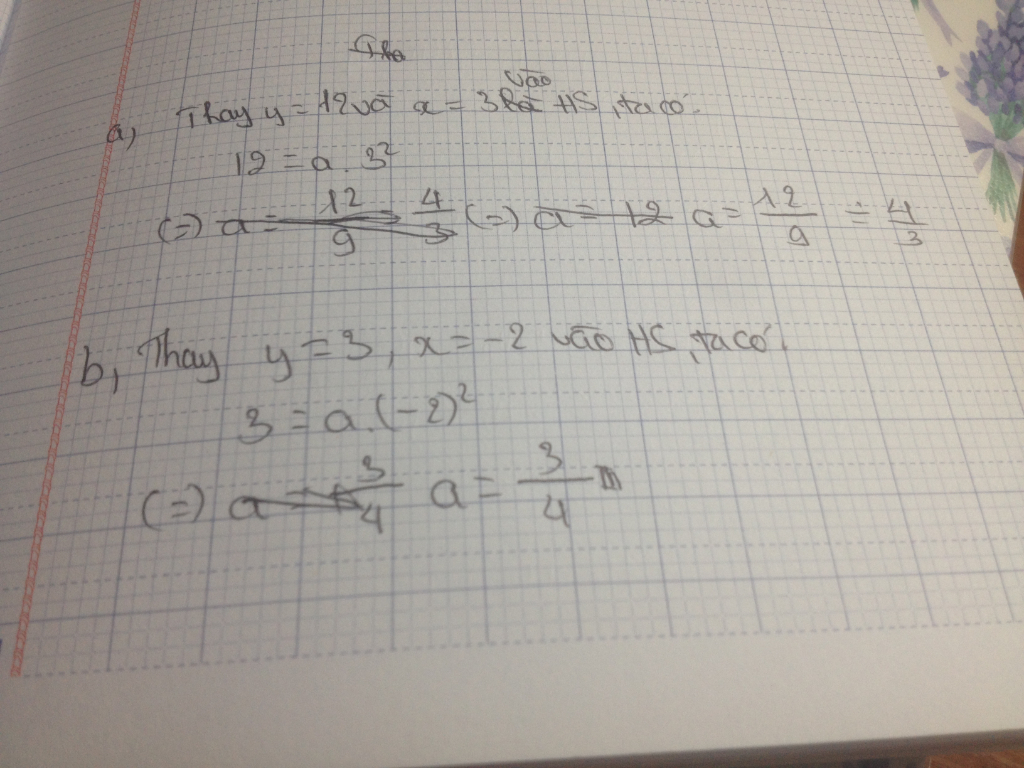 Tha
vào
a, Thay y = 12 và x = 3 HS, ta có.
12 = a . 3²
(=) a = 12/9 4/3 (=) a = 12 a = 12/9 = 4/3
b, Thay y = 3, x = -2 vào HS, ta có.
3 = a.(-2)²
(=) a 3/4 a = 3/4